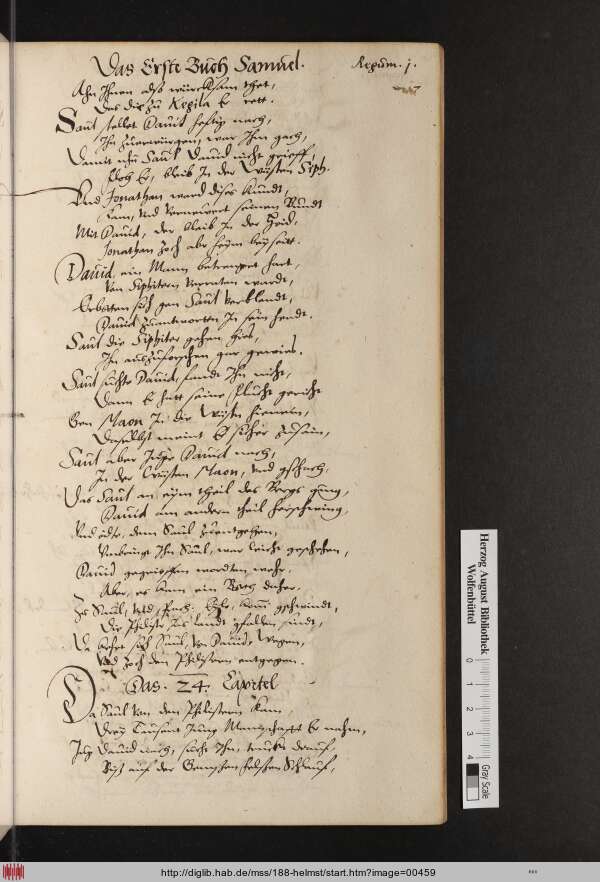 Das Erste Buch Samuel. Regum. j.
Das die zu Kegila Er rett.
Saul stellet Dauid hefftig nach,
Ihn zuerwürgen, war Ihm gach,
Damit nun Saul Dauid nicht
Er, bleib In der Wüsten Siph.
Und Jonathan ward dises kundt,
Kam, und vernewert seinen Bundt
Mit Dauid, der bleib In der Heid,
Jonathan zoch aber heym beyseitt.
Dauid, ein Mann hart,
Von Siphitern verraten wardt,
sich gen Saul
Dauid zuantworten In sein hendt.
Saul die Siphiter gehen hies,
Ihn auszuforschen gar gewies.
Saul suchte Dauid, fandt Ihn nicht,
Dann Er hett seine flucht gericht
Gen Maon In die Wüsten hienein,
Daselbst meint Er sicher zusein,
Saul aber Jagt Dauid nach,
In der Wüsten Maon, und gschach,
Das Saul an eym theil des Bergs gieng,
Dauid am andern theil
Und eilte, dem Saul zuentgehen,
Ihn Saul, war leicht geschehen,
Dauid gegriffen worden wehr,
Aber, es kam ein Bott daher,
Zu Saul, und sprach: Eyle, kom gschwindt,
Die Philister Ins landt gfallen sindt,
Da kehrt sich Saul, von Dauids wegen,
Und zoch den Philistern entgegen.
Das. 24. Capitel
Da Saul von den Philistern kam,
Drey Tausent Jung Manschafft Er nahm,
Jagt Dauid nach, sucht Ihn, drauff,
auff der Gemschen felsen
Herzog August Bibliothek
Wolfenbüttel
0 1 2 3 4
Gray Scale
http://diglib.hab.de/mss/188-helmst/start.htm?image=00459